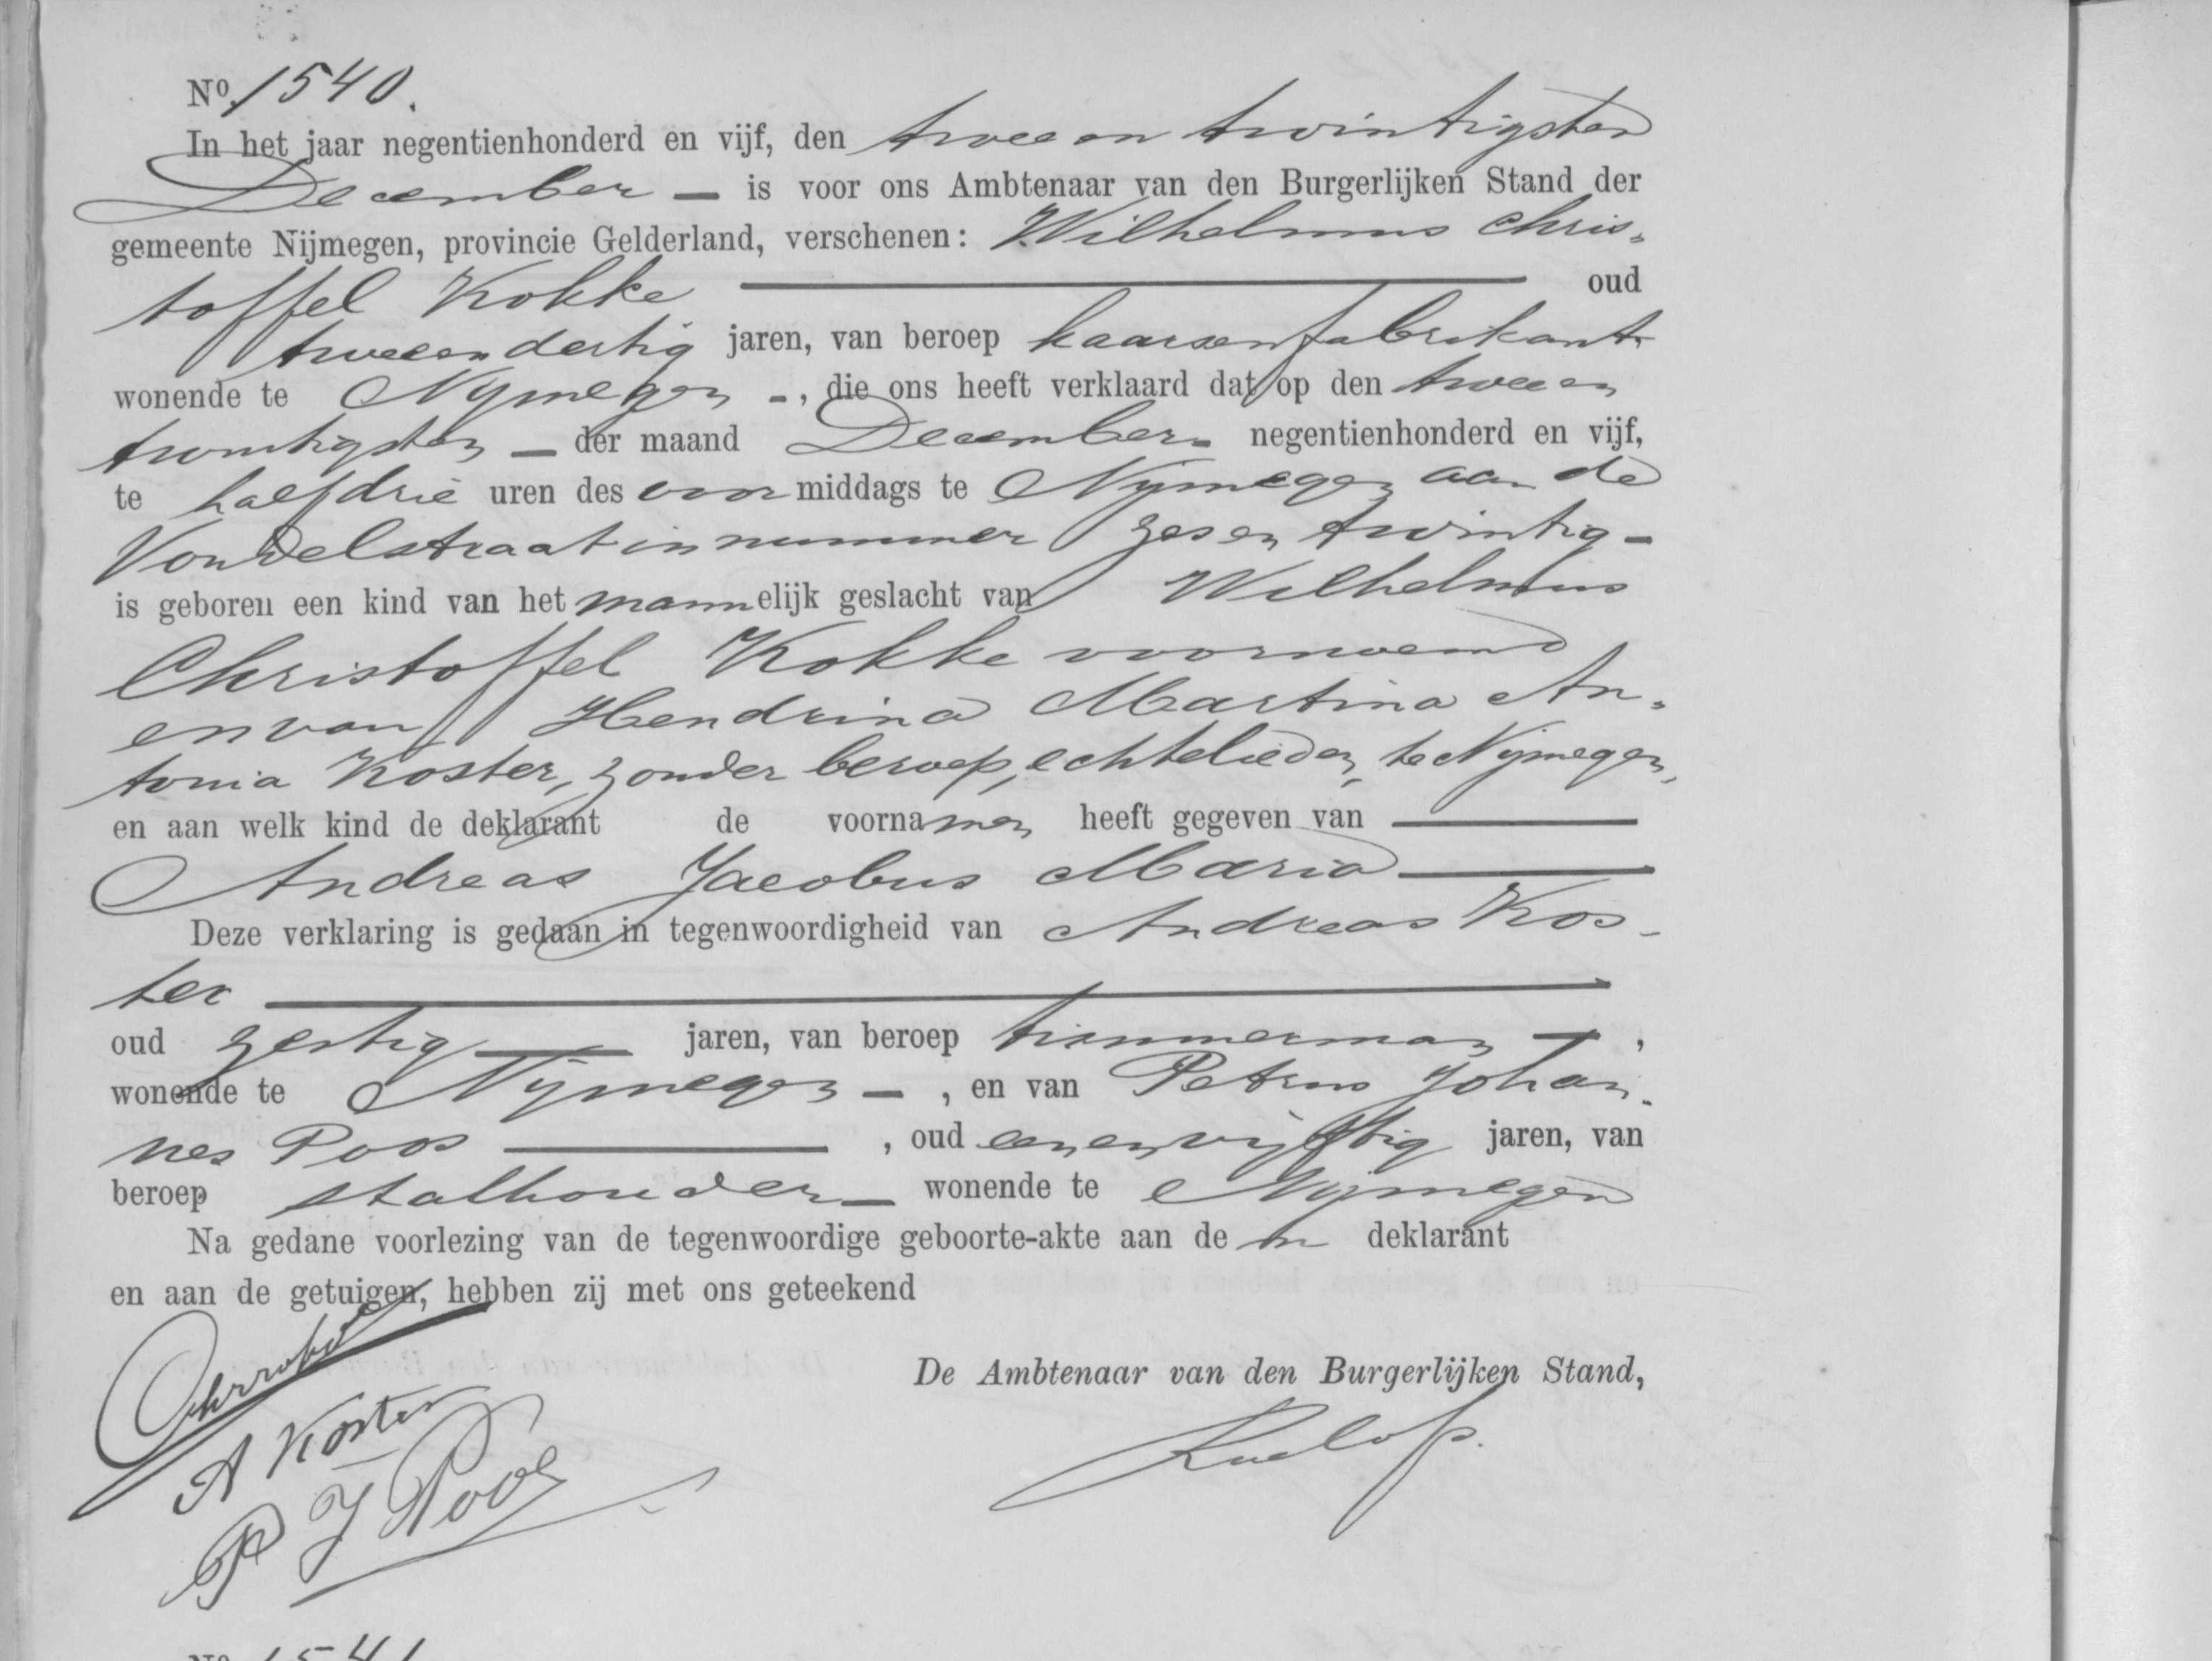 No. 1540.
In het jaar negentienhonderd en vijf, den twee en twintigsten
December — is voor ons Ambtenaar van den Burgerlijken Stand der
gemeente Nijmegen, provincie Gelderland, verschenen: Wilhelmus Chris-
toffel Kokke — oud
tweeendertig jaren, van beroep kaarsenfabrikant
wonende te Nymegen -, die ons heeft verklaard dat op den twee en
twintigsten — der maand December - negentienhonderd en vijf,
te half drie uren des voormiddags te Nijmegen aan de
Vondelstraat in nummer zes en twintig -
is geboren een kind van het mannelijk geslacht van Wilhelmus
Christoffel Kokke voornoemd
en van Hendrina Martina An-
tonia Koster, zonder beroep, echtelieden, te Nijmegen,
en aan welk kind de deklarant de voornamen heeft gegeven van —
Andreas Jacobus Maria —
Deze verklaring is gedaan in tegenwoordigheid van Andreas Kos-
ter —
oud zestig — jaren, van beroep timmerman —,
wonende te Nijmegen —, en van Petrus Johan-
nes Poos —, oud eenenvijftig jaren, van
beroep stalhouder — wonende te Nijmegen
Na gedane voorlezing van de tegenwoordige geboorte-akte aan den deklarant
en aan de getuigen, hebben zij met ons geteekend
De Ambtenaar van den Burgerlijken Stand,
A Koster
P J Poos
No 1541